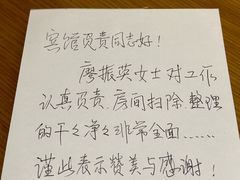 宾馆负责同志好！
廖振英女士对工作
认真负责、房间扫除整理
的干々净々非常全面……
谨此表示赞美与感谢！